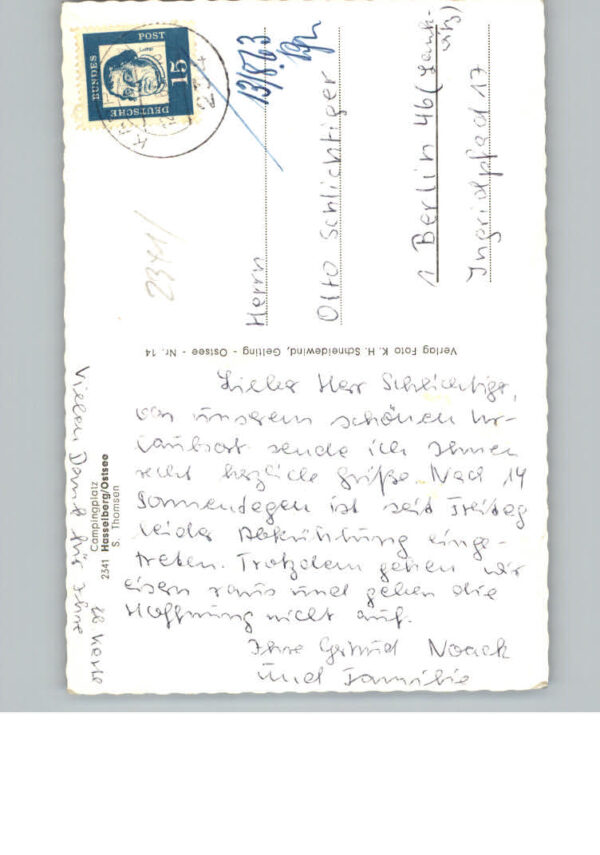 DEUTSCHE
BUNDES
POST
15
234
13/8.63
2341/
Herrn
Otto Schlichtiger
1 Berlin 46 (Lank-
witz)
Ingridpfad 17
Verlag Foto K. H. Schneidewind, Gelting - Ostsee - Nr. 14
Campingplatz
2341 Hasselberg/Ostsee
S. Thomsen
Lieber Herr Schlichtiger,
von unserem schönen Ur-
laubsort sende ich Ihnen
recht herzliche Grüße. Nach 14
Sonnentagen ist seit Freitag
leider Abkühlung einge-
treten. Trotzdem gehen wir
eisern raus und geben die
Hoffnung nicht auf.
Ihre Gertrud Noack
und Familie
Vielen Dank für Ihre
lb. Karte